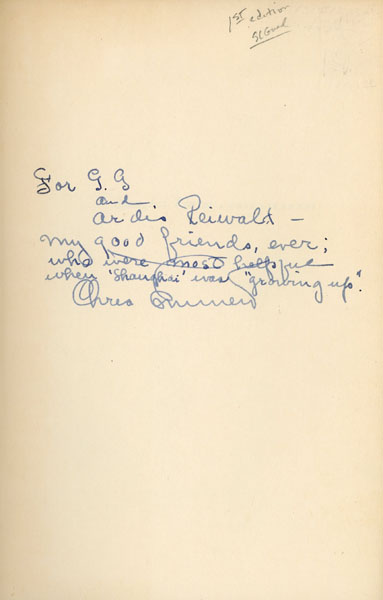 1st edition
Signed
For G. G
and
Ardis
my good friends, ever;
who were most helpful
when 'Shanghai' was "growing up".
Chris Emmett